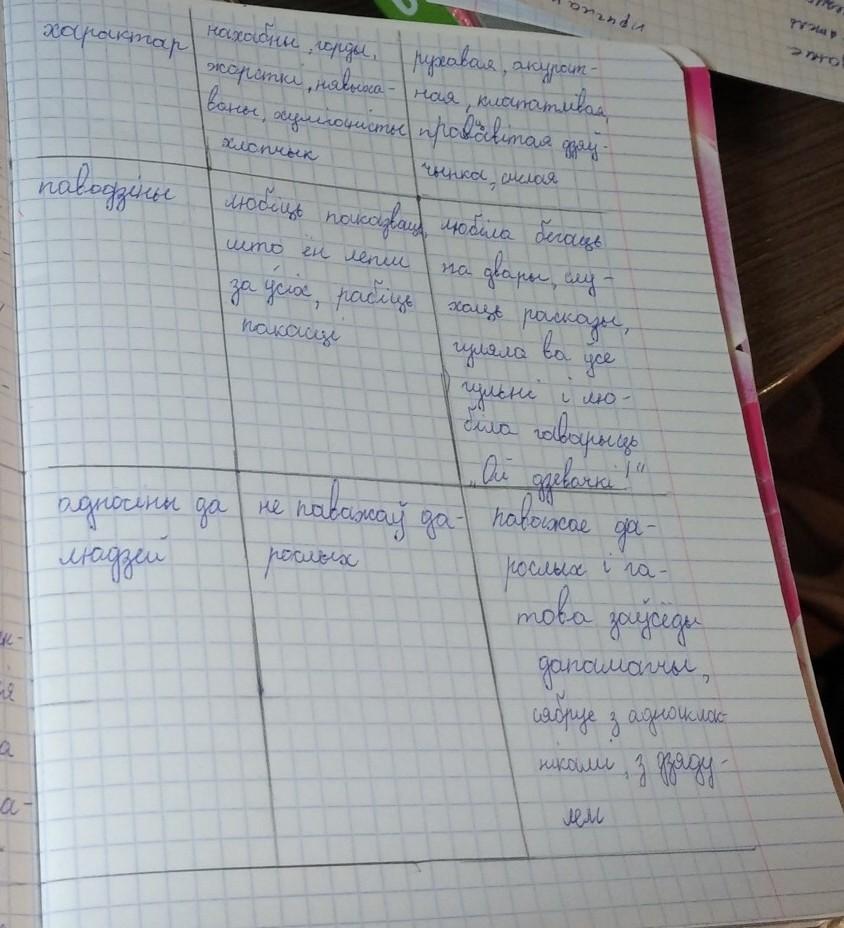 характар
нахабны, горды,
жорсткі, нявыха-
ваны, хуліганісты
хлопчык
рухавая, акурат-
ная, клапатлівая,
працавітая дзяў-
чынка, смелая
паводзіны
любіць паказваць,
што ён лепш
за ўсіх, рабіць
пакасці
любіла бегаць
на двары, слу-
хаць расказы,
гуляла ва ўсе
гульні і лю-
біла гаварыць
„Ой дзевачкі!“
адносіны да
людзей
не паважаў да-
рослых
паважае да-
рослых і га-
това заўсёды
дапамагчы,
сябруе з аднаклас-
нікамі, з дзяду-
лем